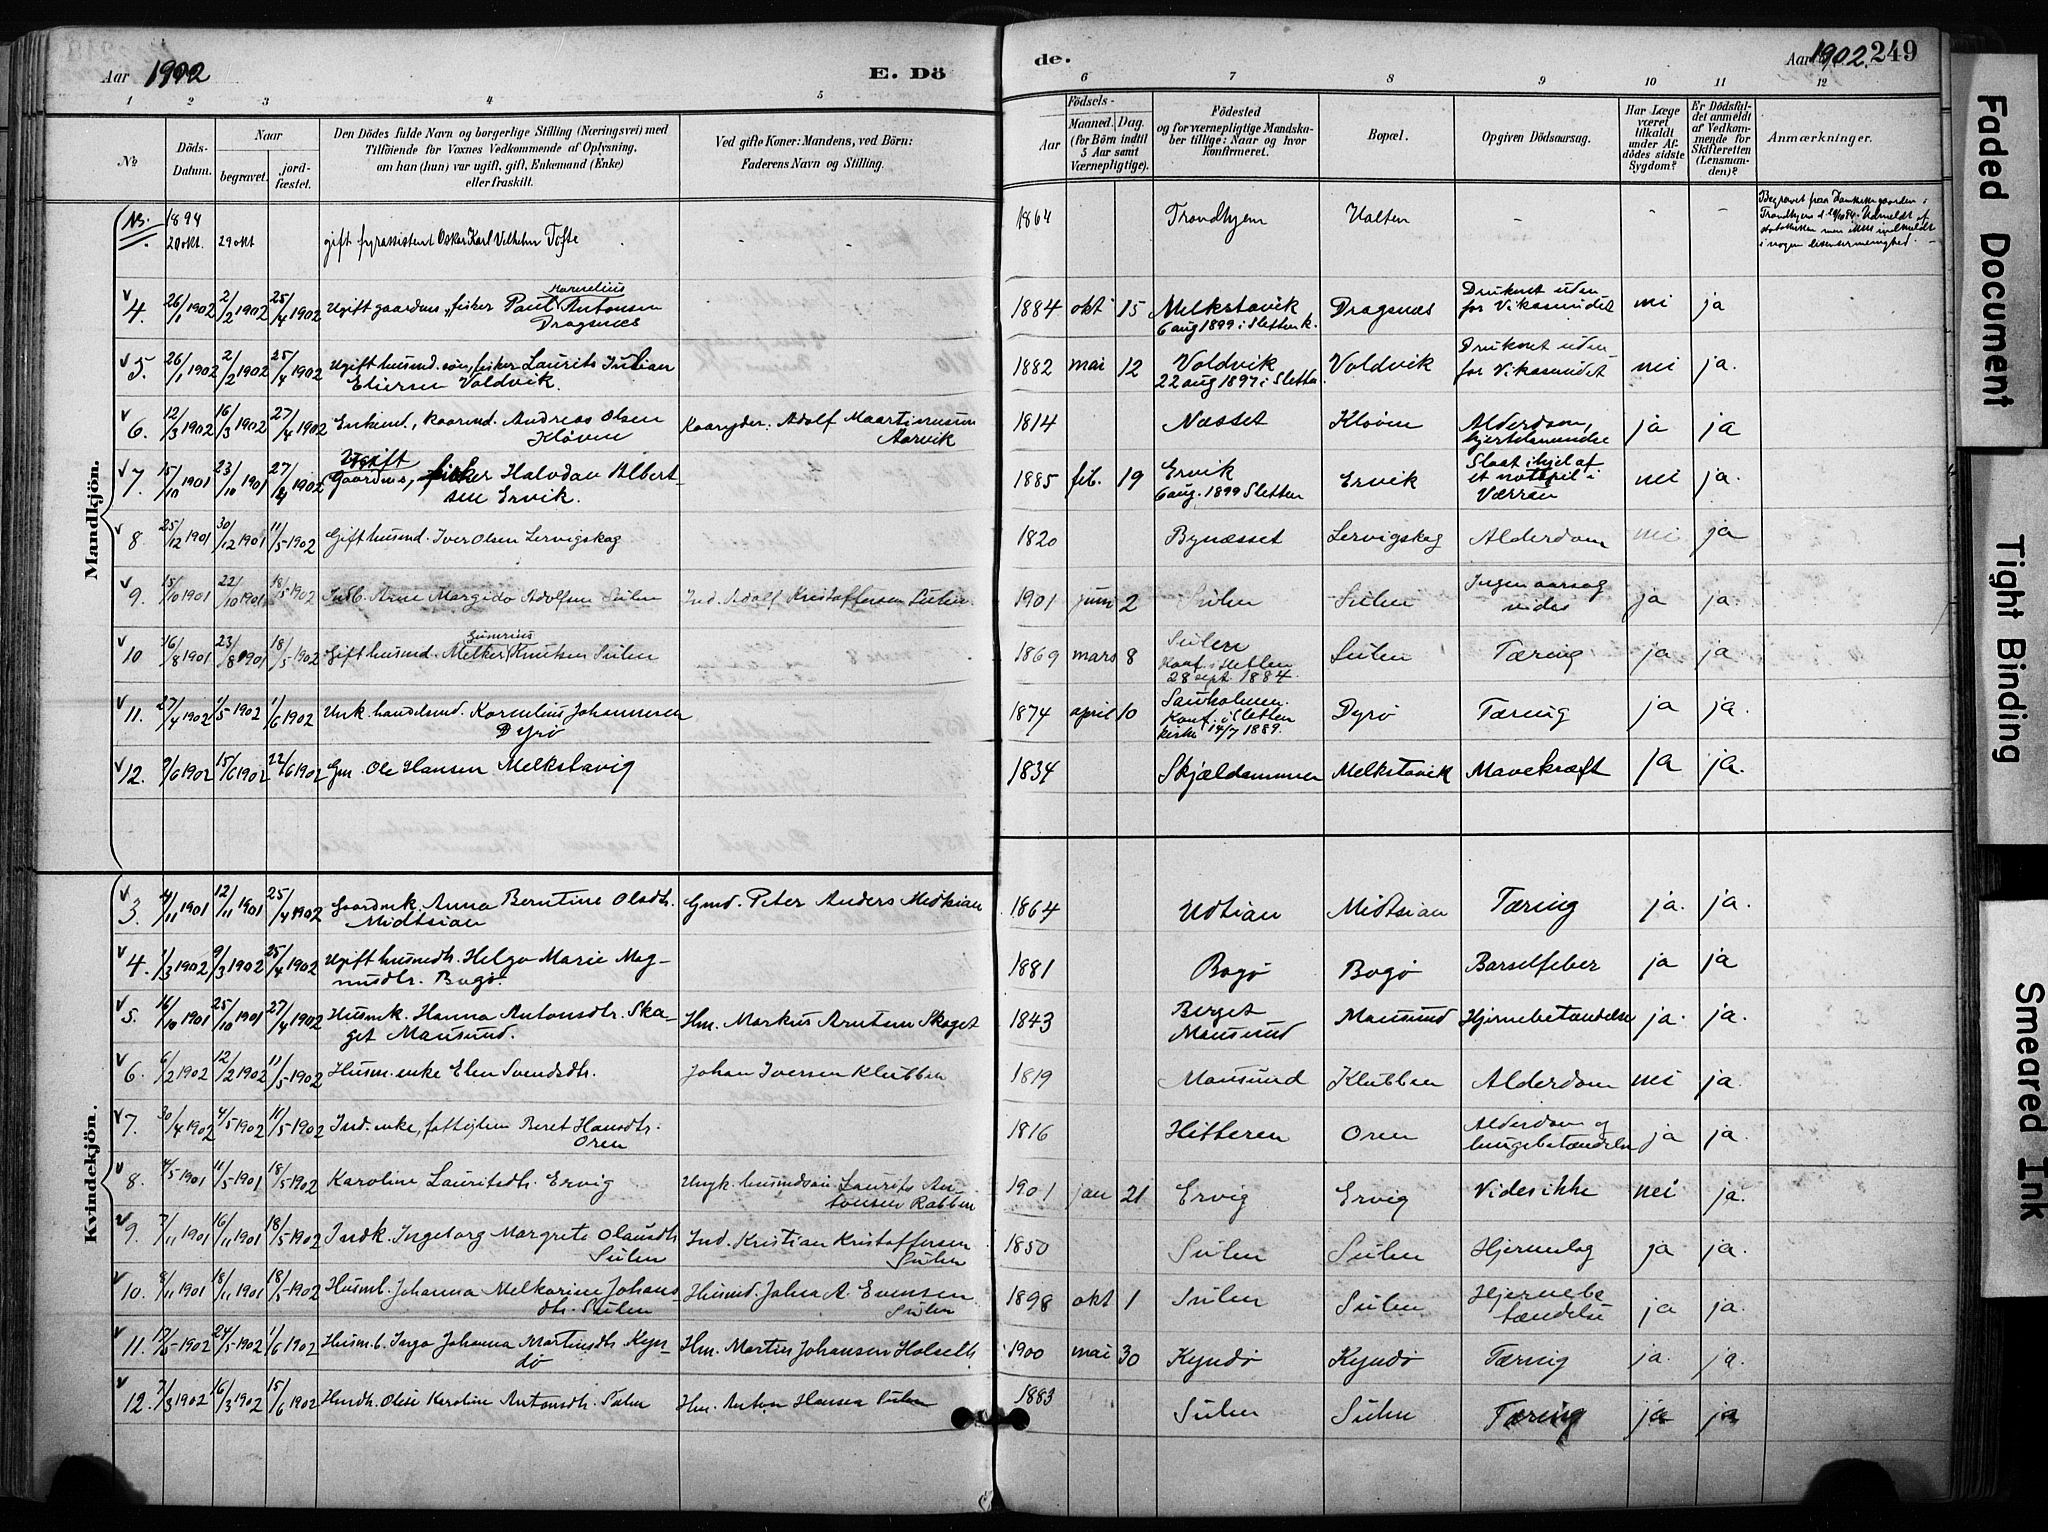 Aar 1902
E. Dö
de.
Aar 1902. 249
1 2 3 4 5 6 7 8 9 10 11 12
No
Döds-Datum.
Naar
begravet.
jord-fæstet.
Den Dödes fulde Navn og borgerlige Stilling (Næringsvei) med
Tilföiende for Voxnes Vedkommende af Oplysning,
om han (hun) var ugift, gift, Enkemand (Enke)
eller fraskilt.
Ved gifte Koner: Mandens, ved Börn:
Faderens Navn og Stilling.
Födsels-
Aar
Maaned. Dag.
(for Börn indtil
5 Aar samt
Værnepligtige).
Födested
og for værnepligtige Mandska-
ber tillige: Naar og hvor
konfirmeret.
Bopæl.
Opgiven Dödsaarsag.
Har Læge
været
tilkaldt
under Af-
dödes sidste
Sygdom?
Er Dödsfal-
det anmeldt
af Vedkom-
mende for
Skifteretten
(Lensman-
den)?
Anmærkninger.
Mandkjön.
NB. 1894 20 okt. 29 okt gift fyrassistent Oskar Karl Vilhelm Tofte 1864 Trondhjem Halten - - -
Begravet fra
Trondhjem
i nogen dissentermenighed. -
4. 26/1 1902 2/2 1902 25/4 1902 Ugift gaardms., fisker Paul Kornelius Antonsen 1884 okt 15 Melkstavik Dragsnæs Druknet uden nei ja
Dragsnæs 6 aug 1899 i Sletten k. for Vikasundet
5. 26/1 1902 2/2 1902 25/4 1902 Ugift husmd. søn, fisker Laurits Julian 1882 mai 12 Voldvik Voldvik Druknet uden nei ja.
Voldvik. 22 aug 1897 i Sletten. for Vikasundet
6. 12/3 1902 16/3 1902 27/4 1902 Enkemd., kaarmd. Andreas Olsen Kaaryder: Adolf Maartinusen 1814 Næsset Kløven Alderdom, ja ja
Kløven Aarvik
7. 15/10 1901 23/10 1901 27/4 1902 Ugift
Gaardms, fisker Halvdan Albert- 1885 feb. 19 Ervik Ervik Slaat ihjel af nei ja.
sen Ervik. 6 aug. 1899 Sletten et notspil i
Værran
8. 25/12 1901 30/12 1901 11/5 1902 Gift husmd. Iver Olsen Lervigskag 1820 Bynæsset Lervigskag Alderdom nei ja
9. 15/10 1901 22/10 1901 18/5 1902 Indb. Arne Margido Adolfsen Sulen Ind. Adolf Kristoffersen Sulen 1901 juni 2 Sulen Sulen Ingen aarsag ja ja.
vides
10 16/8 1901 23/8 1901 18/5 1902 Gift husmd. Melker Gunerius Knutsen Sulen 1869 mars 8 Sulen Sulen Tæring ja. ja
Konf. i Sletten
28 sept. 1884.
11. 27/4 1902 1/5 1902 1/6 1902 Unk. handelsmd. Kornelius Johannesen 1874 april 10 Sauholmen. Dyrø Tæring ja ja.
Dyrø Konf. i Sletten
kirke 14/7 1889.
12. 9/6 1902 15/6 1902 22/6 1902 Gm. Ole Hansen Melkstavig 1834 Skjældammen Melkstavik Mavekræft ja ja.
Kvindekjön.
3. 4/11 1901 12/11 1901 25/4 1902 Gaardmk. Anna Berntine Olsdtr. Gmd. Peter Anders Midtsian 1864 Udtian Midtsian Tæring ja. ja.
Midtsian
4. 1/3 1902 9/3 1902 25/4 1902 Ugift husmdtr. Helga Marie Mag- 1881 Bogø Bogø Barselfeber ja ja
nusdtr. Bogø.
5. 16/10 1901 25/10 1901 27/4 1902 Husmk. Hanna Antonsdtr. Ska- Hm. Markus Arntsen Skaget 1843 Berget Mausund Hjernebetændelse ja. ja.
get Mausund. Mausund
6. 6/2 1902 12/2 1902 11/5 1902 Husm. enke Elen Svendsdtr. Johan Iversen Klubben 1819 Mausund Klubben Alderdom nei ja.
7. 30/4 1902 4/5 1902 11/5 1902 Ind. enke, fattiglem Beret Hansdtr. 1816 Hitteren Oren Alderdom og ja ja.
Oren lungebetændelse
8. 4/5 1901 11/5 1901 18/5 1902 Karoline Lauritsdtr. Ervig Ungk. husmdsøn Laurits An- 1901 jan 21 Ervig Ervig Vides ikke nei ja.
tonsen Rabben
9. 7/11 1901 16/11 1901 18/5 1902 Indk. Ingeborg Margrete Olausdtr. Ind. Kristian Kristoffersen 1850 Sulen Sulen Hjerneslag ja ja.
Sulen Sulen
10. 8/11 1901 18/11 1901 18/5 1902 Husmb. Johanna Melkarine Johans- Husmd. Johan A. Evensen 1898 okt 1 Sulen Sulen Hjernebe ja ja.
dtr. Sulen Sulen tændelse
11. 17/5 1902 24/5 1902 1/6 1902 Husmb. Inga Johanna Martinsdtr. Kyn- Hm. Martin Johansen Holseth 1900 mai 30 Kyndø Kyndø Tæring ja. ja.
dø
12. 7/3 1902 16/3 1902 15/6 1902 Husdtr. Oline Karoline Antonsdtr. Sulen Hm. Anton Hansen Sulen 1883 Sulen Sulen Tæring ja ja
Faded Document
Tight Binding
Smeared Ink